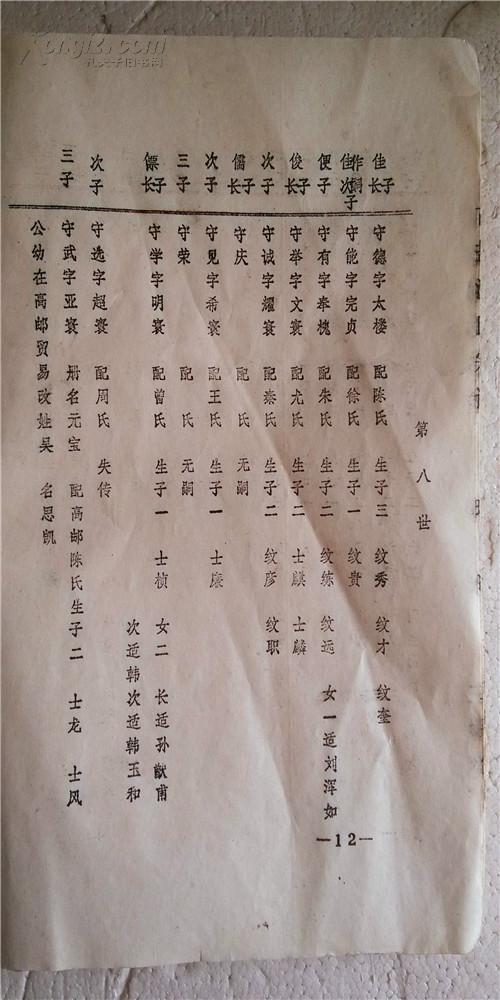 第八世
佳长子 守德字太楼 配陈氏 生子三 纹秀 纹才 纹奎
佳次子 作嗣子 守能字完贞 配徐氏 生子一 纹贵
便子 守有字奉槐 配朱氏 生子二 纹练 纹远 女一适刘浑如
俊长子 守举字文寰 配尤氏 生子二 士麒 士麟
次子 守诚字耀寰 配秦氏 生子二 纹彦 纹职
儒长子 守庆 配 氏 无嗣
次子 守见字希寰 配王氏 生子一 士廉
三子 守荣 配 氏 无嗣
傈长子 守学字明寰 配曾氏 生子一 士桢 女二 长适孙猷甫
次适韩次适韩玉和
次子 守选字超寰 配周氏 失传
三子 守武字亚寰 册名元宝 配高邮陈氏生子二 士龙 士风
公幼在高邮贸易改姓吴 名思凯
—12—